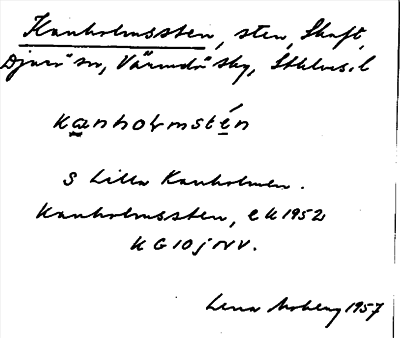 Kanholmssten, sten, Skaft,
Djurö sn, Värmdö skg, Sthlms.l
kanholmstén
S Lilla Kanholmen.
Kanholmssten, ek 1952
K G 10 j NV.
Lena Moberg 1957